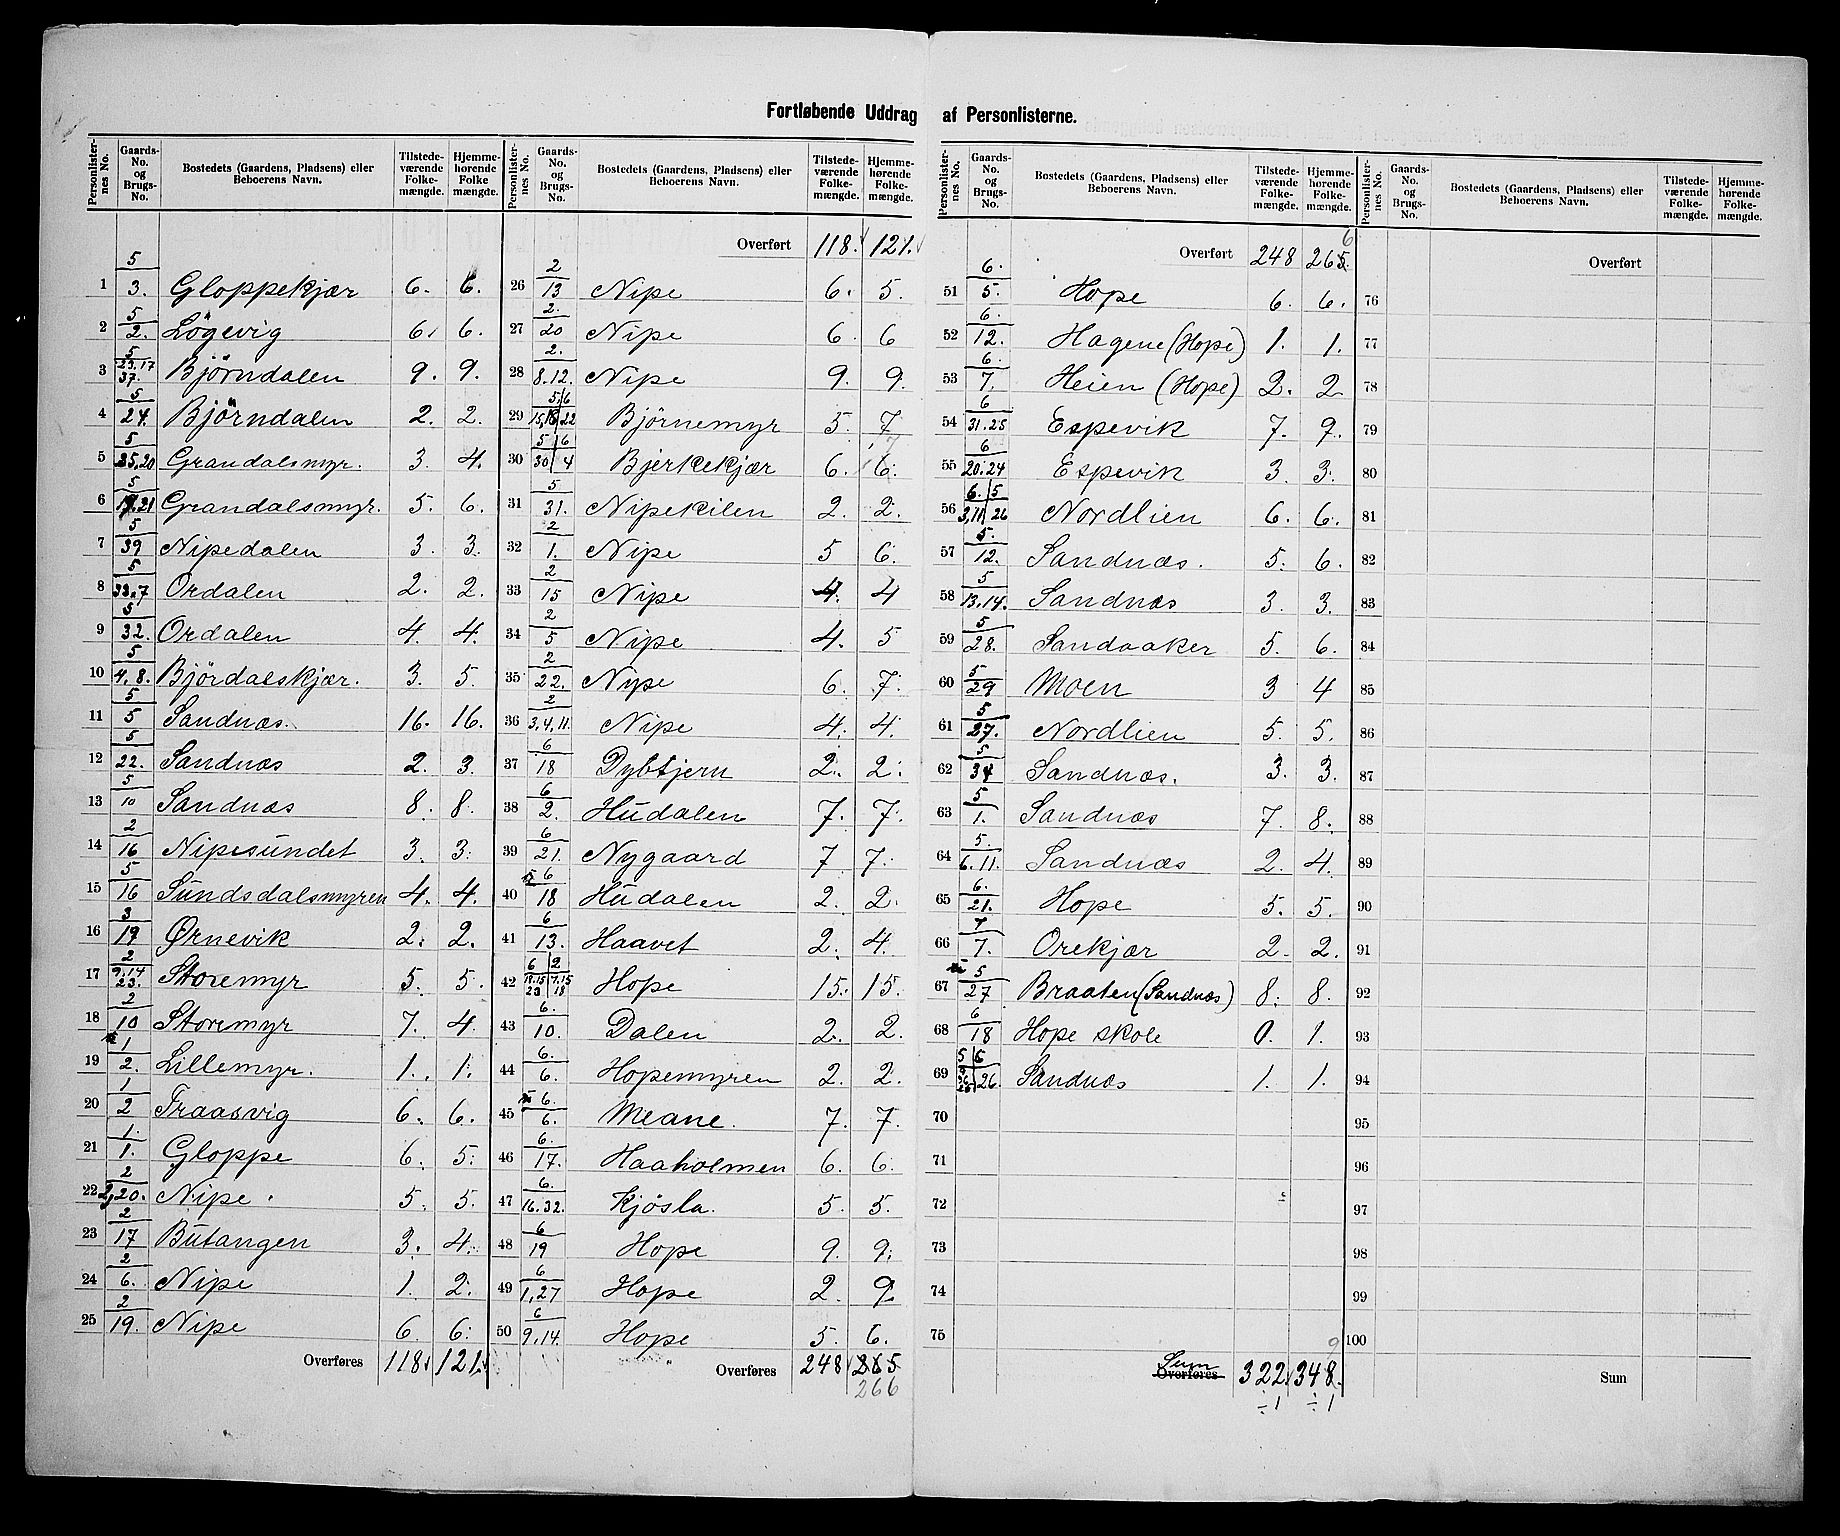 Fortløbende Uddrag af Personlisterne.
Personlister-nes No. | Gaards-No. og Brugs-No. | Bostedets (Gaardens, Pladsens) eller Beboerens Navn. | Tilstede-værende Folke-mængde. | Hjemme-hørende Folke mængde.
1 | 5/3. | Gloppekjær | 6. | 6.
2 | 5/2. | Løgevig | 6. | 6.
3 | 5/23.17 37. | Bjørndalen | 9. | 9.
4 | 5/24. | Bjørndalen | 2. | 2.
5 | 5/35,20 | Grandalsmyr. | 3. | 4.
6 | 5/17.21 | Grandalsmyr. | 5. | 6.
7 | 5/39 | Nipedalen | 3. | 3.
8 | 5/33.7 | Ordalen | 2. | 2.
9 | 5/32. | Ordalen | 4. | 4.
10 | 5/4,8. | Björdalskjær. | 3. | 5.
11 | 5/5 | Sandnæs. | 16. | 16.
12 | 5/22. | Sandnæs | 2. | 3.
13 | 5/10 | Sandnæs | 8. | 8.
14 | 2/16 | Nipesundet | 3. | 3.
15 | 5/16 | Sundsdalsmyren | 4. | 4.
16 | 3/19 | Ørnevik | 2. | 2.
17 | 2/9.14 23. | Storemyr | 5. | 5.
18 | 2/10 | Storemyr | 7. | 4.
19 | 1/2. | Lillemyr. | 1. | 1.
20 | 1/2 | Traasvig | 6. | 6.
21 | 1./1. | Gloppe | 6. | 5.
22 | 2/2,20. | Nipe. | 5. | 5.
23 | 2/17 | Butangen | 3. | 4.
24 | 2/6. | Nipe | 1. | 2.
25 | 2/19. | Nipe | 6. | 6.
Overføres | 118. | 121.
Personlister-nes No. | Gaards-No. og Brugs-No. | Bostedets (Gaardens, Pladsens) eller Beboerens Navn. | Tilstede-værende Folke-mængde. | Hjemme-hørende Folke-mængde.
Overført | 118. | 121.
26 | 2/13 | Nipe | 6. | 5.
27 | 2./20 | Nipe | 6. | 6
28 | 2./8.12. | Nipe | 9. | 9.
29 | 5./15,16 6/22 | Bjørnemyr | 5. | 7.
30 | 5/30 6/4 | Bjerkekjær | 6. | 6.
31 | 5/31. | Nipekilen | 2. | 2.
32 | 2/1. | Nipe | 5 | 6.
33 | 2/15 | Nipe | 4. | 4
34 | 2/5 | Nipe | 4. | 5
35 | 2/22. | Nype | 6. | 7.
36 | 2/3,4,11. | Nipe | 4. | 4.
37 | 6/18 | Dybtjern | 2. | 2.
38 | 6/2. | Hudalen | 7. | 7.
39 | 6/21. | Nygaard | 7 | 7.
40 | 6/18 | Hudalen | 2. | 2.
41 | 6/13. | Haavet | 2. | 4.
42 | 6/18.15 23 2/7.15 18 | Hope | 15. | 15.
43 | 6./10. | Dalen | 2. | 2.
44 | 6./6. | Hopemyren | 2. | 2.
45 | 6./6. | Meane. | 7. | 7.
46 | 6./17. | Haaholmen | 6. | 6.
47 | 6./16.32. | Kjøsla. | 5. | 5.
48 | 6/19 | Hope | 9. | 9.
49 | 6/1,27 | Hope | 2. | 9.
50 | 6/9.14. | Hope | 5. | 6.
Overføres | 248 | 265
266
Personlister-nes No. | Gaards-No. og Brugs-No. | Bostedets (Gaardens, Pladsens) eller Beboerens Navn. | Tilstede-værende Folke-mængde. | Hjemme-hørende Folke-mængde.
6
Overført | 248 | 265.
51 | 6./5. | Hope | 6. | 6.
52 | 6./12. | Hagene (Hope) | 1. | 1.
53 | 6./7. | Heien (Hope) | 2. | 2
54 | 6/31.25 | Espevik | 7. | 9.
55 | 6/20.24 | Espevik | 3. | 3.
56 | 6./3,11 5/26 | Nordlien | 6. | 6.
57 | 5./12. | Sandnæs. | 5. | 6.
58 | 5/13.14. | Sandnæs | 3. | 3.
59 | 5/28. | Sandaaker | 5. | 6.
60 | 5/29 | Moen | 3 | 4
61 | 5/27. | Nordlien | 5. | 5.
62 | 5/34 | Sandnæs. | 3. | 3.
63 | 5/1. | Sandnæs | 7. | 8.
64 | 5./6.11. | Sandnæs | 2. | 4.
65 | 6./21. | Hope | 5. | 5.
66 | 7/7. | Orekjær | 2. | 2.
67 | 5/27 | Braaten (Sandnæs) | 8. | 8.
68 | 6/18 | Hope skole | 0. | 1.
69 | 5 6/26. | Sandnæs | 1. | 1.
70
71
72
73
74
75
9
Sum Overføres | 322. | 348.
÷1 | ÷1
Personlister-nes No. | Gaards-No. og Brugs-No. | Bostedets (Gaardens, Pladsens) eller Beboerens Navn. | Tilstede-værende Folke-mængde. | Hjemme-hørende Folke-mængde.
Overført
76
77
78
79
80
81
82
83
84
85
86
87
88
89
90
91
92
93
94
95
96
97
98
99
100
Sum